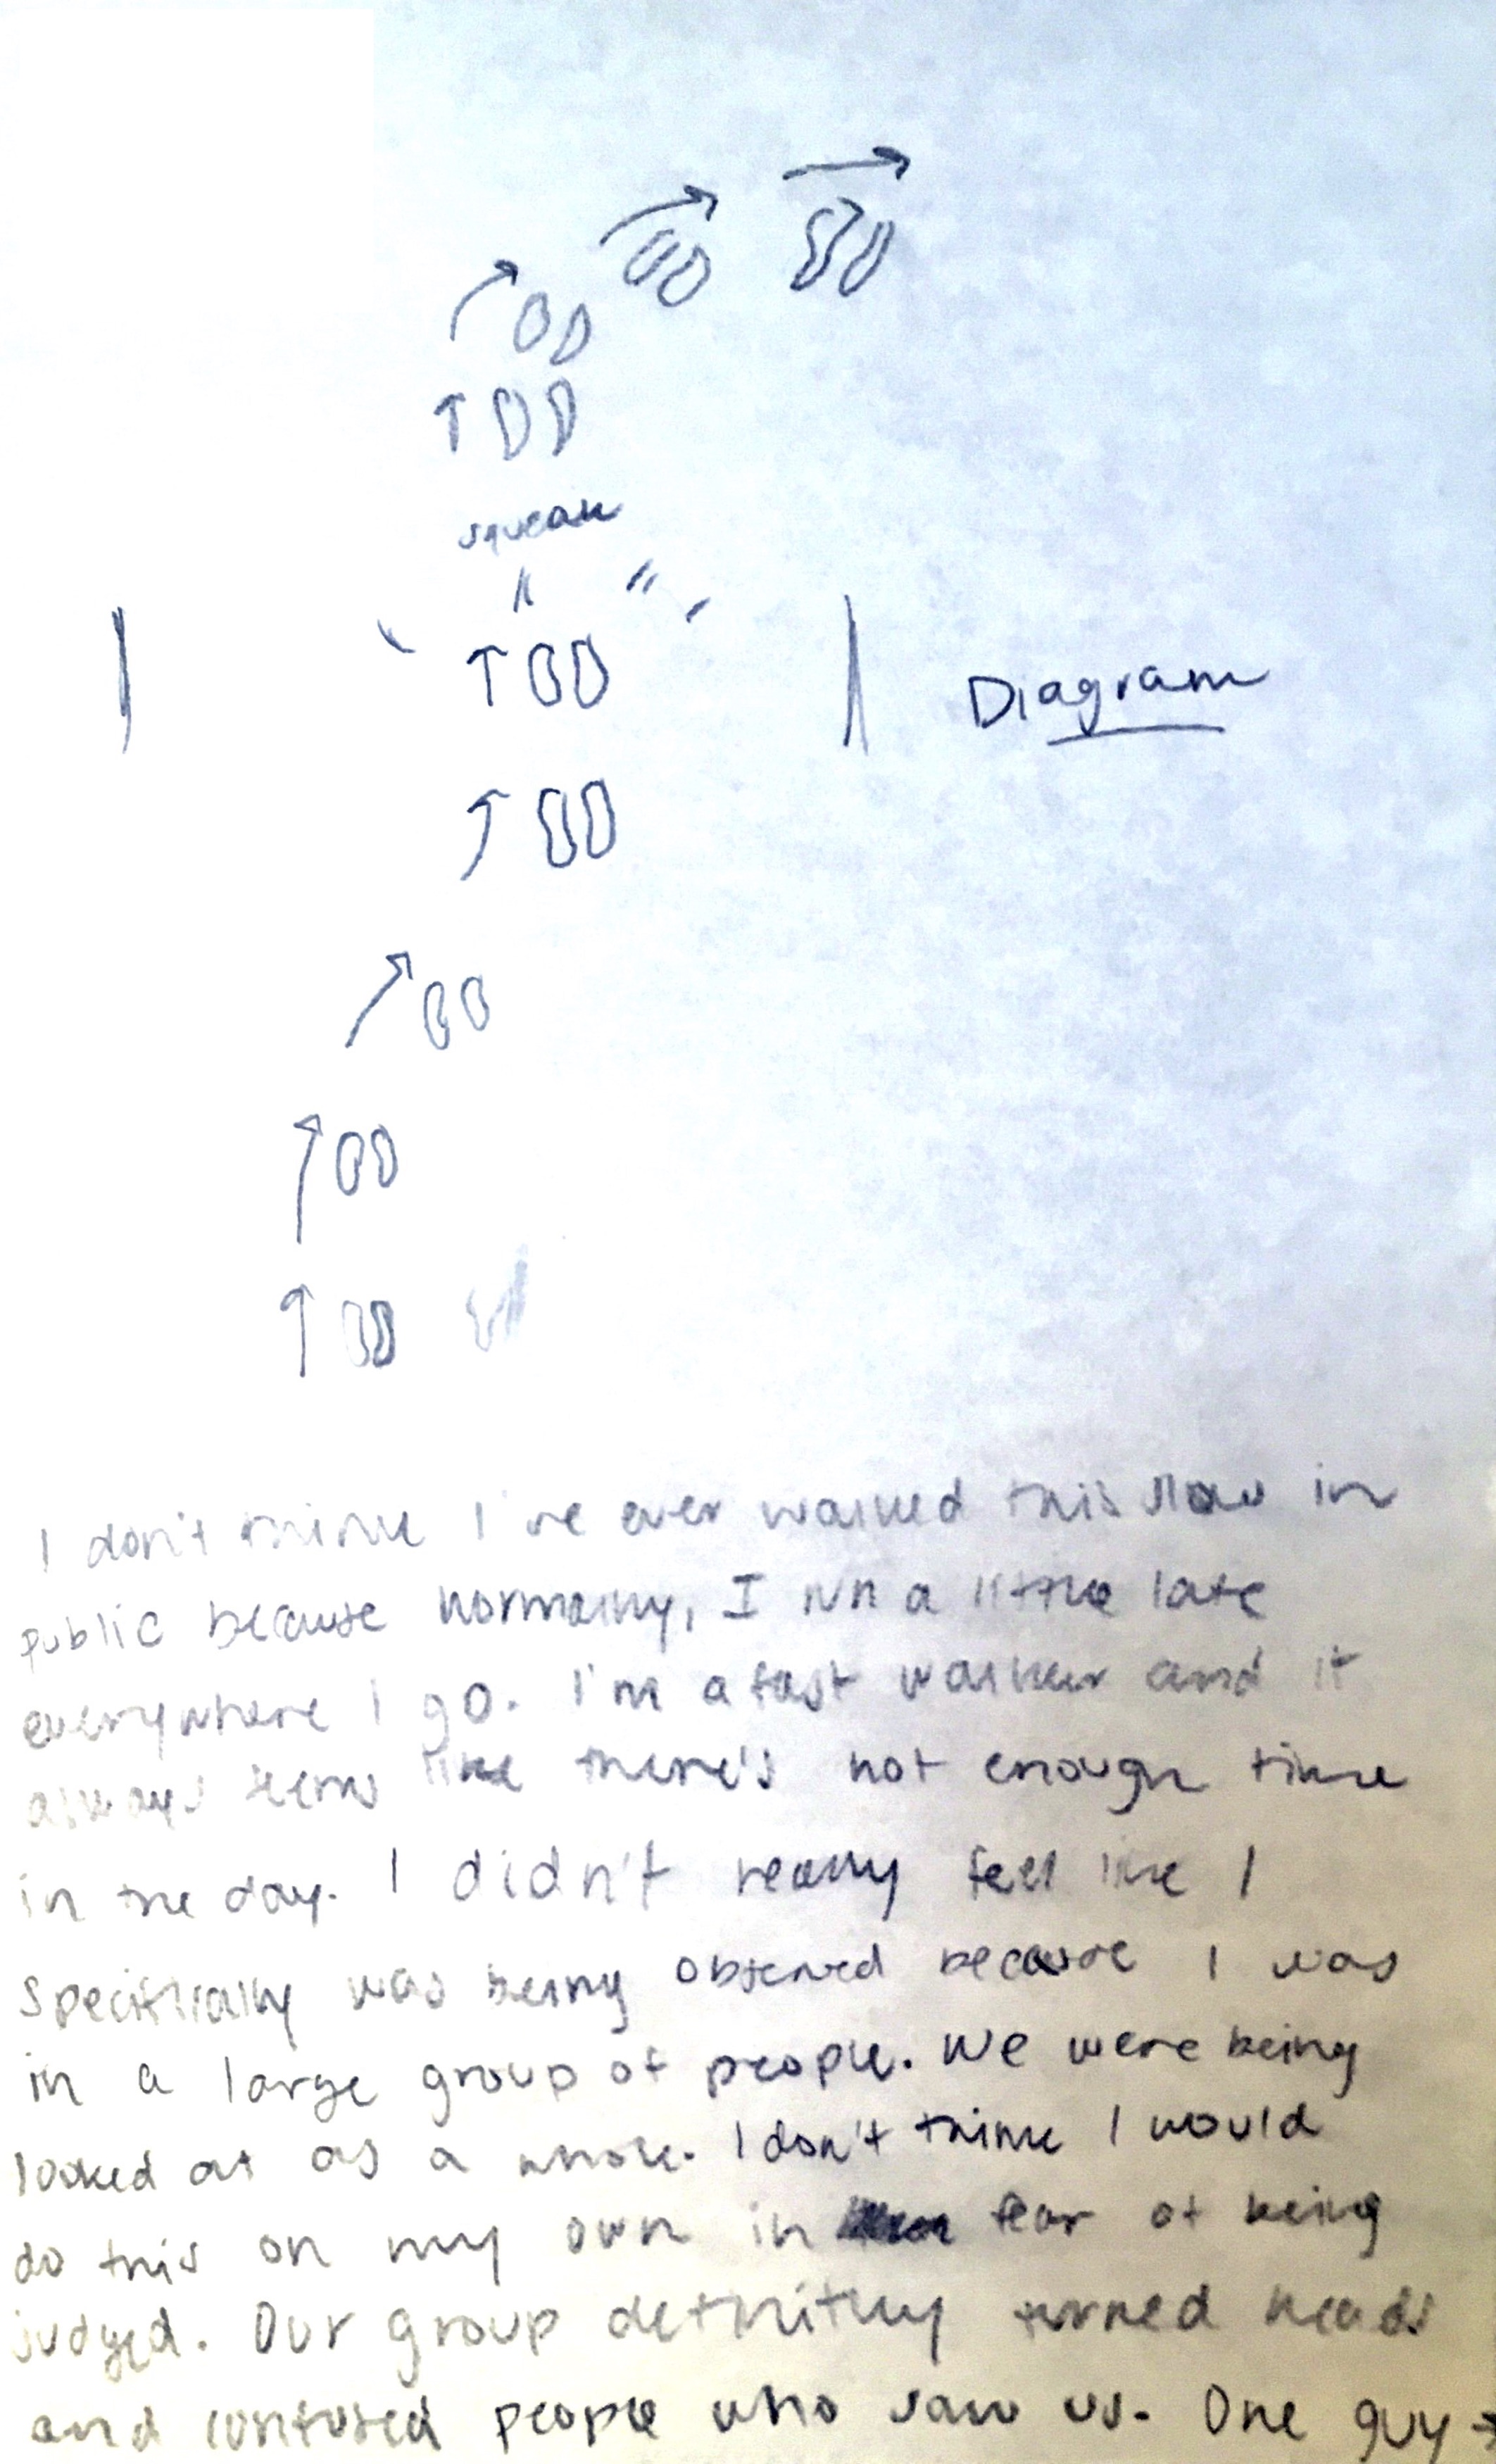 squeak
Diagram
I don't think I've ever walked this slow in
public because normally, I run a little late
everywhere I go. I'm a fast walker and it
always seems like there's not enough time
in the day. I didn't really feel like I
specifically was being observed because I was
in a large group of people. We were being
looked at as a whole. I don't think I would
do this on my own in fear of being
judged. Our group definitley turned heads
and confused people who saw us. One guy →